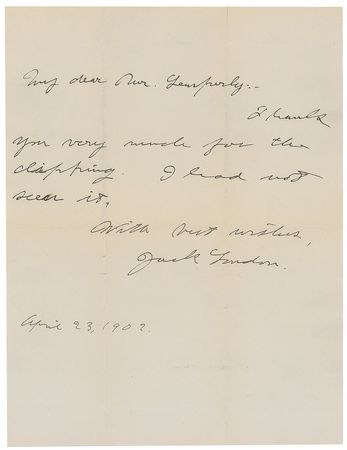 My dear Mr. Lemperly:-
Thank
you very much for the
clipping. I had not
seen it.
With best wishes,
Jack London.
April 23, 1902.